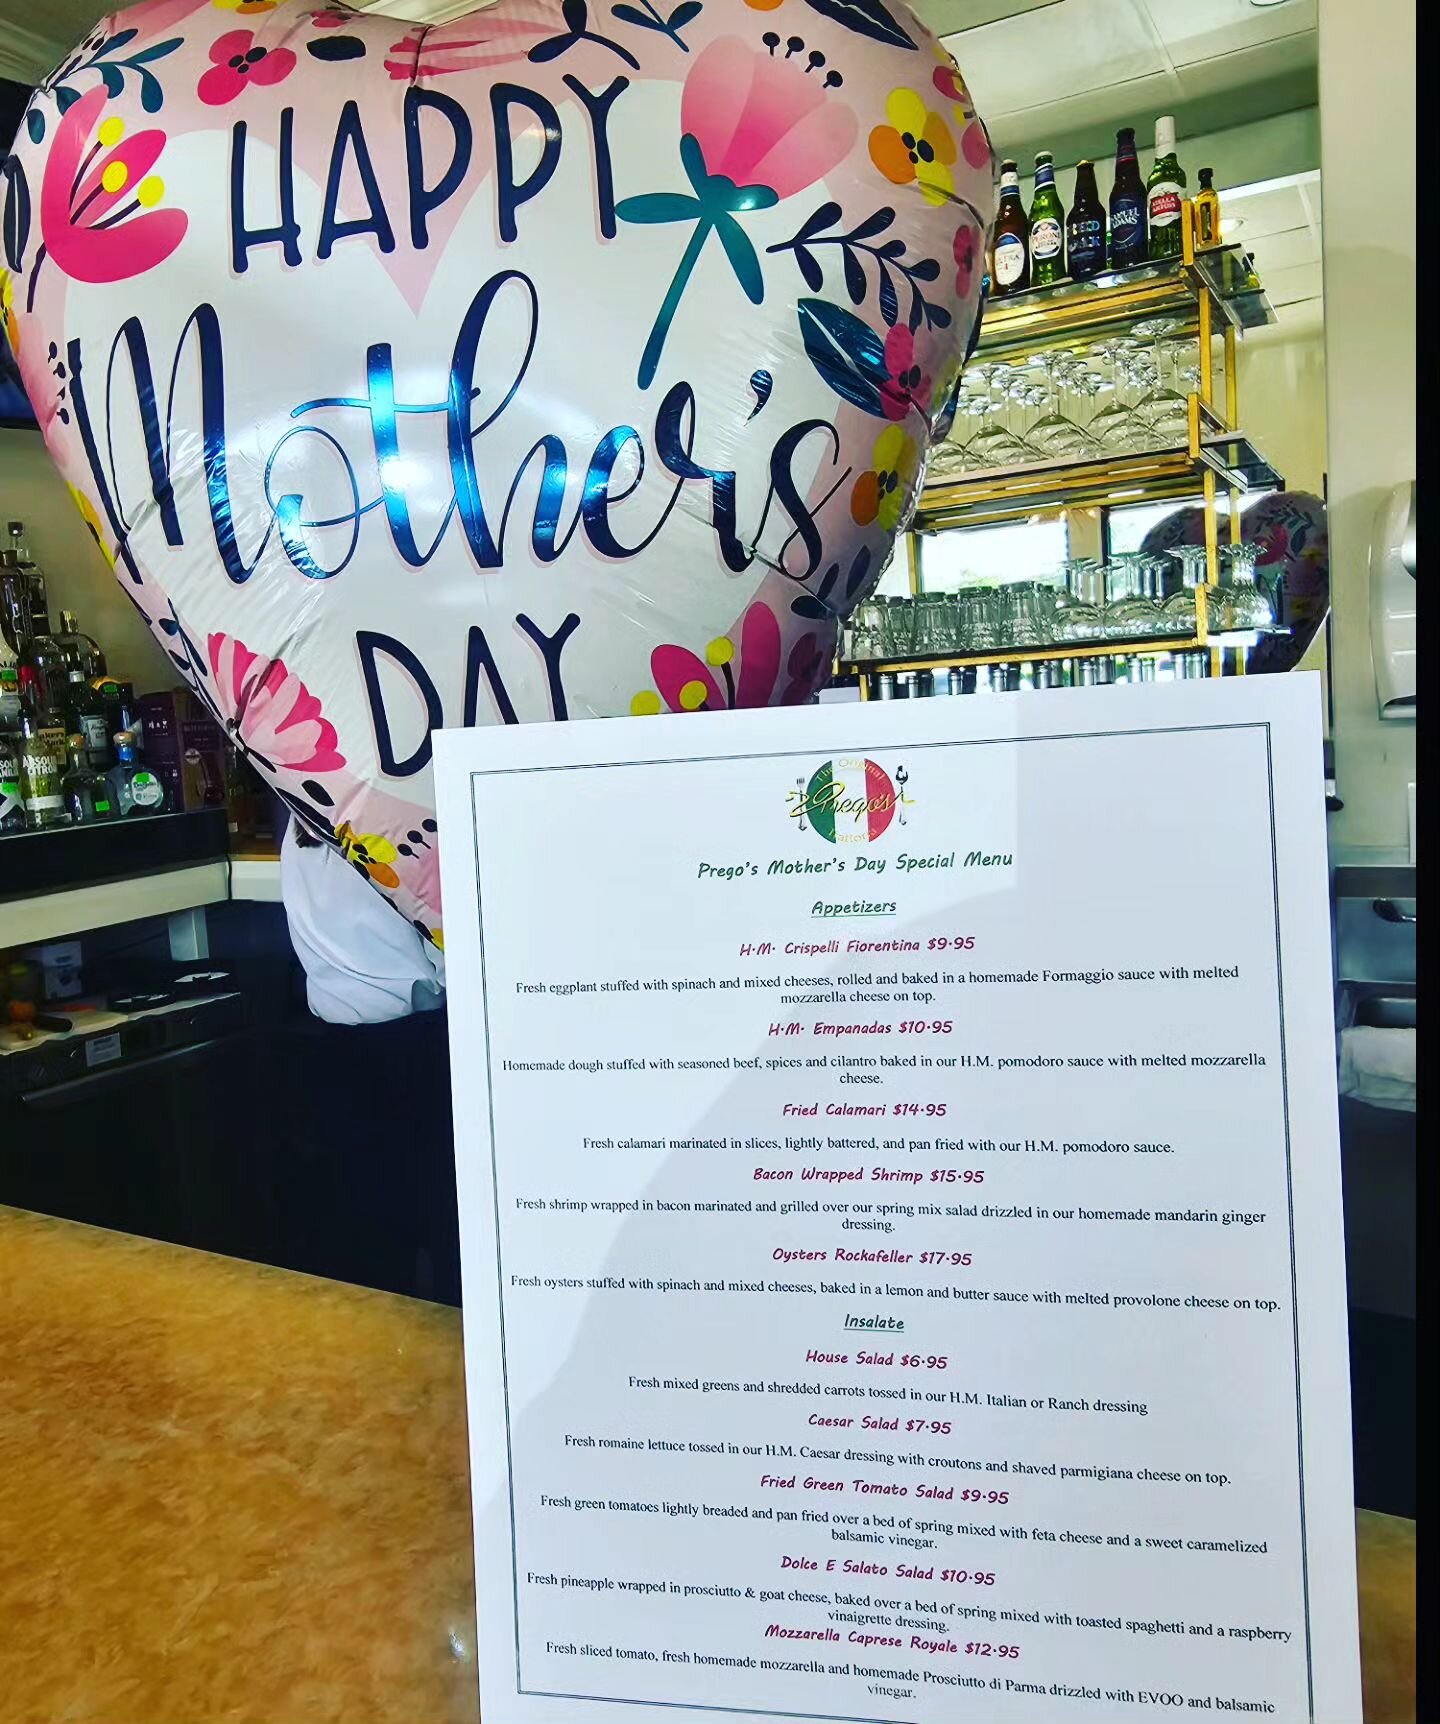 HAPPY
Mother's
DAY
PERONI
SAMUEL
ADAMS
STELLA
ARTOIS
The Original
Prego's
Trattoria
Prego's Mother's Day Special Menu
Appetizers
H.M. Crispelli Fiorentina $9.95
Fresh eggplant stuffed with spinach and mixed cheeses, rolled and baked in a homemade Formaggio sauce with melted
mozzarella cheese on top.
H.M. Empanadas $10.95
Homemade dough stuffed with seasoned beef, spices and cilantro baked in our H.M. pomodoro sauce with melted mozzarella
cheese.
Fried Calamari $14.95
Fresh calamari marinated in slices, lightly battered, and pan fried with our H.M. pomodoro sauce.
Bacon Wrapped Shrimp $15.95
Fresh shrimp wrapped in bacon marinated and grilled over our spring mix salad drizzled in our homemade mandarin ginger
dressing.
Oysters Rockafeller $17.95
Fresh oysters stuffed with spinach and mixed cheeses, baked in a lemon and butter sauce with melted provolone cheese on top.
Insalate
House Salad $6.95
Fresh mixed greens and shredded carrots tossed in our H.M. Italian or Ranch dressing
Caesar Salad $7.95
Fresh romaine lettuce tossed in our H.M. Caesar dressing with croutons and shaved parmigiana cheese on top.
Fried Green Tomato Salad $9.95
Fresh green tomatoes lightly breaded and pan fried over a bed of spring mixed with feta cheese and a sweet caramelized
balsamic vinegar.
Dolce E Salato Salad $10.95
Fresh pineapple wrapped in prosciutto & goat cheese, baked over a bed of spring mixed with toasted spaghetti and a raspberry
vinaigrette dressing.
Mozzarella Caprese Royale $12.95
Fresh sliced tomato, fresh homemade mozzarella and homemade Prosciutto di Parma drizzled with EVOO and balsamic
vinegar.